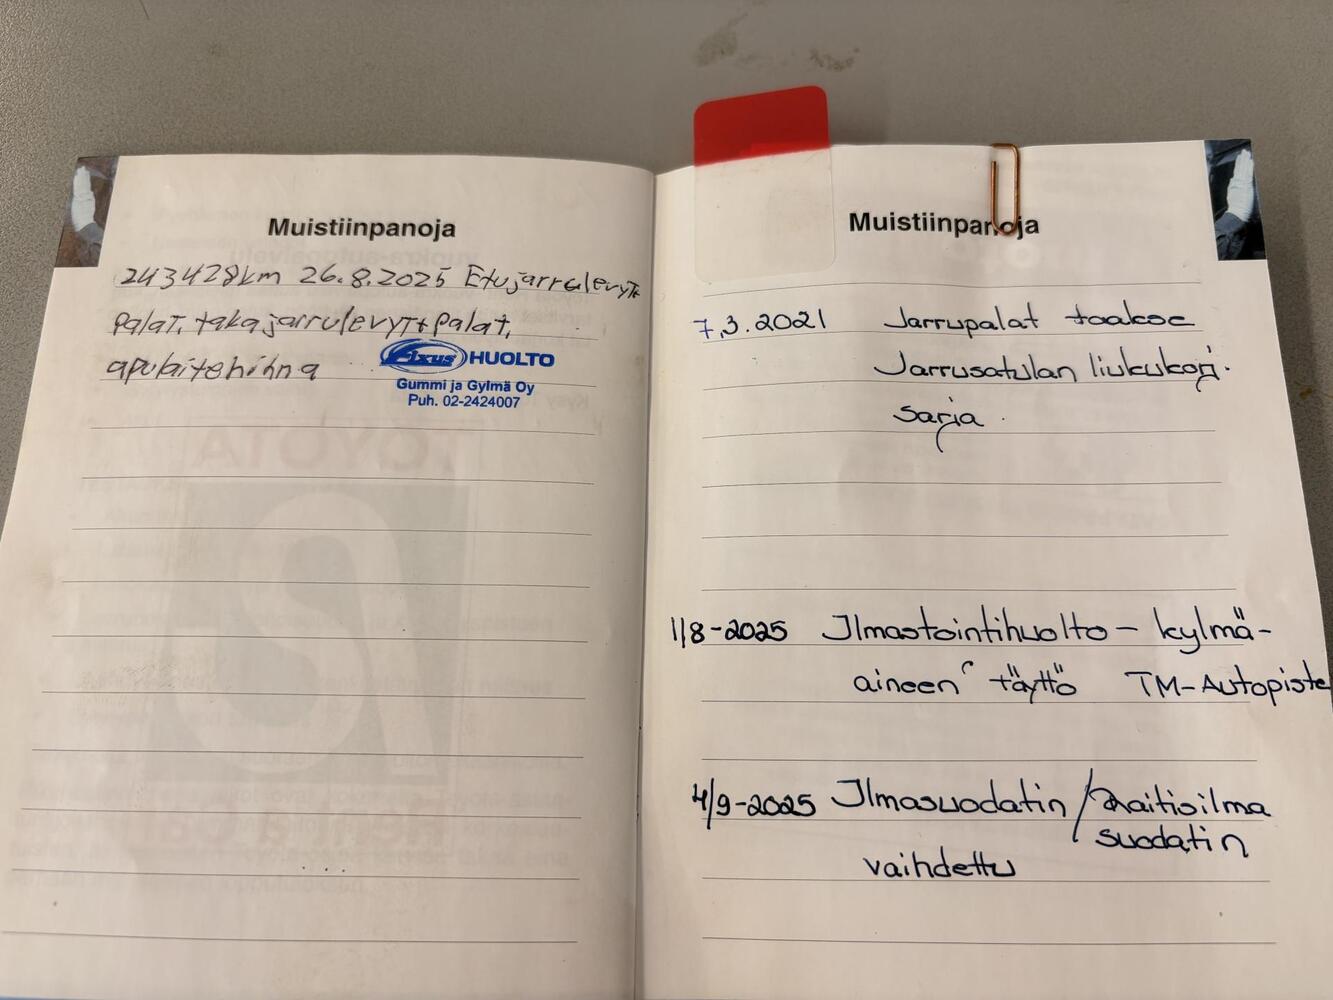 Muistiinpanoja
243428km 26.8.2025 Etujarrulevyt+
palat, takajarrulevyt+palat,
apulaitehihna
Fixus HUOLTO
Gummi ja Gylmä Oy
Puh. 02-2424007
Muistiinpanoja
7.3.2021 Jarrupalat taakse
Jarrusatulan liukukorj.
sarja.
1/8-2025 Ilmastointihuolto - kylmä-
aineen täyttö TM-Autopiste
4/9-2025 Ilmasuodatin / Raitisilma
suodatin
vaihdettu